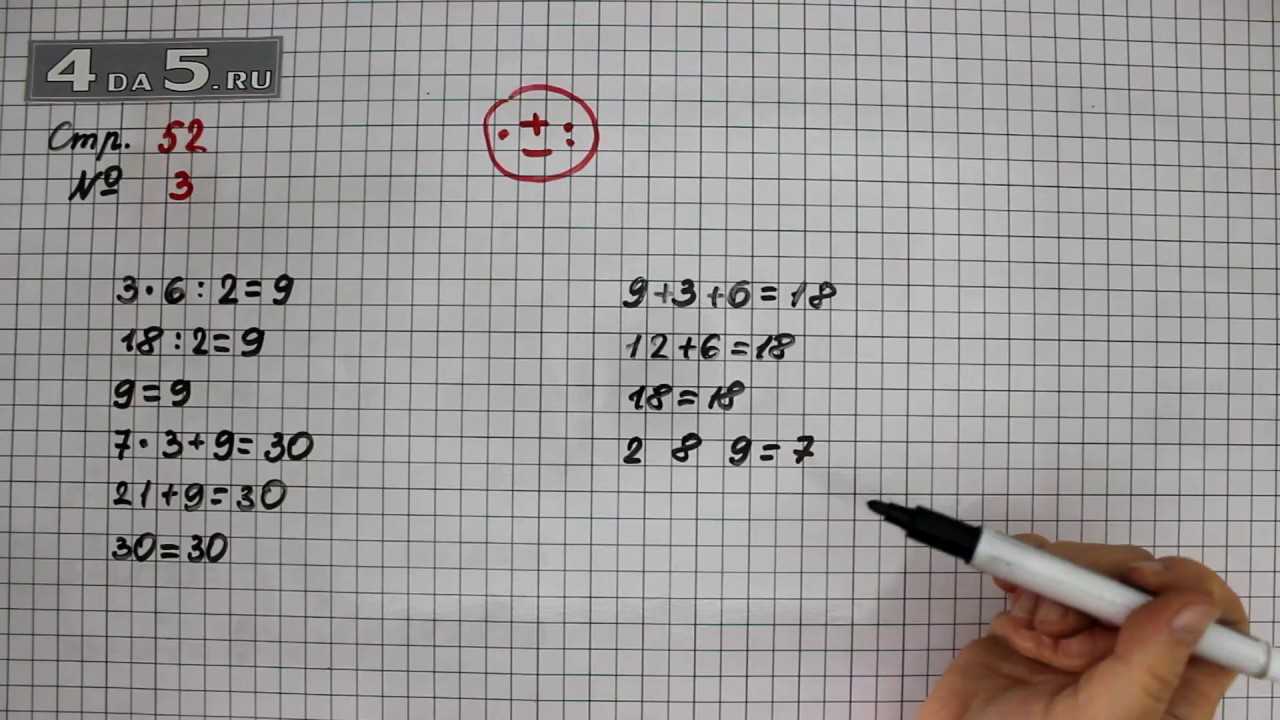 4DA5.RU
Стр. 52
№ 3
· + − :
3·6:2=9
18:2=9
9=9
7·3+9=30
21+9=30
30=30
9+3+6=18
12+6=18
18=18
2 8 9=7